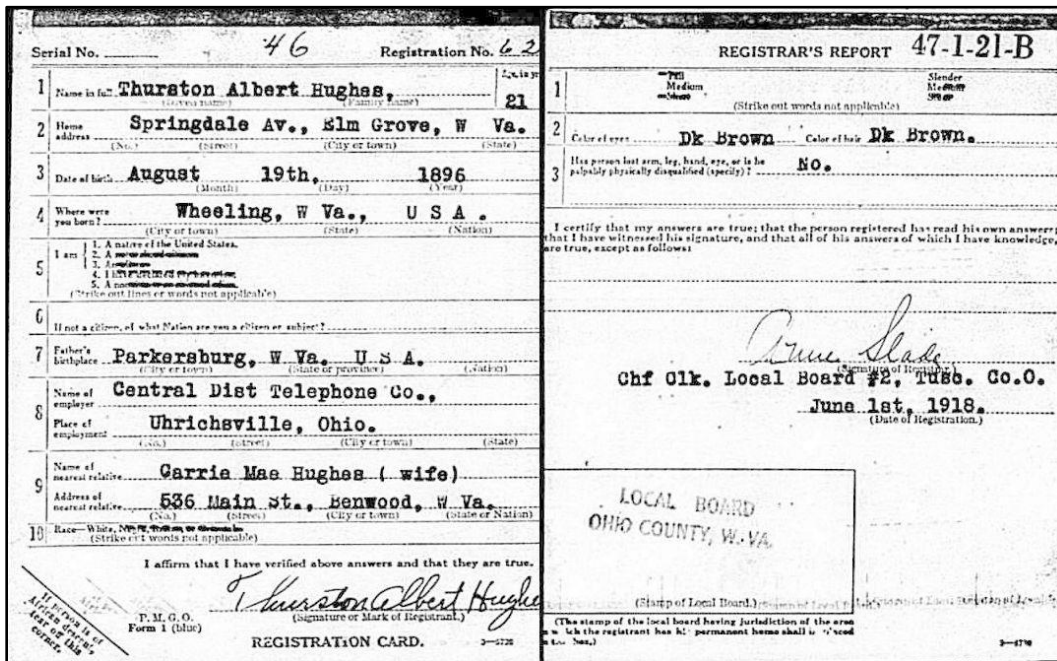 Serial No. 46 Registration No. 62
1 Name in full Thurston Albert Hughes, Age, in yrs
(Given name) (Family name) 21
2 Home address Springdale Av., Elm Grove, W Va.
(No.) (Street) (City or town) (State)
3 Date of birth August 19th, 1896
(Month) (Day) (Year)
4 Where were you born? Wheeling, W Va., U S A.
(City or town) (State) (Nation)
5 I am
1. A native of the United States.
2. A
3. A
4. I
5. A
(Strike out lines or words not applicable)
6
If not a citizen, of what Nation are you a citizen or subject?
7 Father's birthplace Parkersburg, W Va. U S A.
(City or town) (State or province) (Nation)
8 Name of employer Central Dist Telephone Co.,
Place of employment Uhrichsville, Ohio.
(No.) (Street) (City or town) (State)
9 Name of nearest relative Carrie Mae Hughes ( wife)
Address of nearest relative 536 Main St., Benwood, W Va.
(No.) (Street) (City or town) (State or Nation)
10 Race—White,
(Strike out words not applicable)
I affirm that I have verified above answers and that they are true.
Thurston Albert Hughe
(Signature or Mark of Registrant.)
P. M. G. O.
Form 1 (blue)
REGISTRATION CARD.
If person is of
African descent,
tear off this
corner.
REGISTRAR'S REPORT 47-1-21-B
1 Tall Slender
Medium Medium
Short Stout
(Strike out words not applicable)
2 Color of eyes Dk Brown Color of hair Dk Brown.
3 Has person lost arm, leg, hand, eye, or is he
palpably physically disqualified (specify)? No.
I certify that my answers are true; that the person registered has read his own answers;
that I have witnessed his signature, and that all of his answers of which I have knowledge
are true, except as follows:
Slade
(Signature of Registrar.)
Chf Clk. Local Board #2, Tusc. Co.O.
June 1st, 1918.
(Date of Registration.)
LOCAL BOARD
OHIO COUNTY, W.VA.
(Stamp of Local Board.)
(The stamp of the local board having jurisdiction of the area
in which the registrant has his permanent home shall be placed
in this box.)